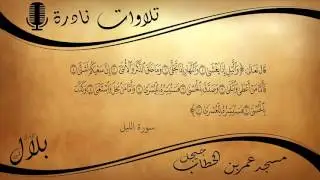 تلاوات نادرة
قال تعالى: ﴿ وَاللَّيْلِ إِذَا يَغْشَىٰ ۝ وَالنَّهَارِ إِذَا تَجَلَّىٰ ۝ وَمَا خَلَقَ الذَّكَرَ وَالْأُنثَىٰ ۝ إِنَّ سَعْيَكُمْ لَشَتَّىٰ ۝
فَأَمَّا مَنْ أَعْطَىٰ وَاتَّقَىٰ ۝ وَصَدَّقَ بِالْحُسْنَىٰ ۝ فَسَنُيَسِّرُهُ لِلْيُسْرَىٰ ۝ وَأَمَّا مَن بَخِلَ وَاسْتَغْنَىٰ ۝ وَكَذَّبَ
بِالْحُسْنَىٰ ۝ فَسَنُيَسِّرُهُ لِلْعُسْرَىٰ ﴾
سورة الليل
بلال
مسجد عمر بن الخطاب جيجل